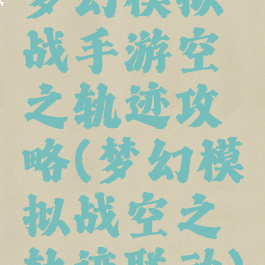 梦幻模拟
战手游空
之轨迹攻
略(梦幻模
拟战空之
轨迹联动)